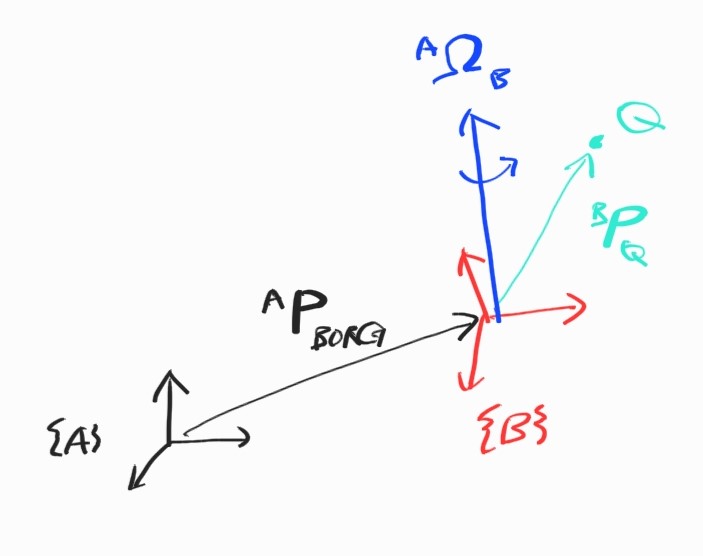 ᴬΩ_B
Q
ᴮP_Q
ᴬP_BORG
{A}
{B}